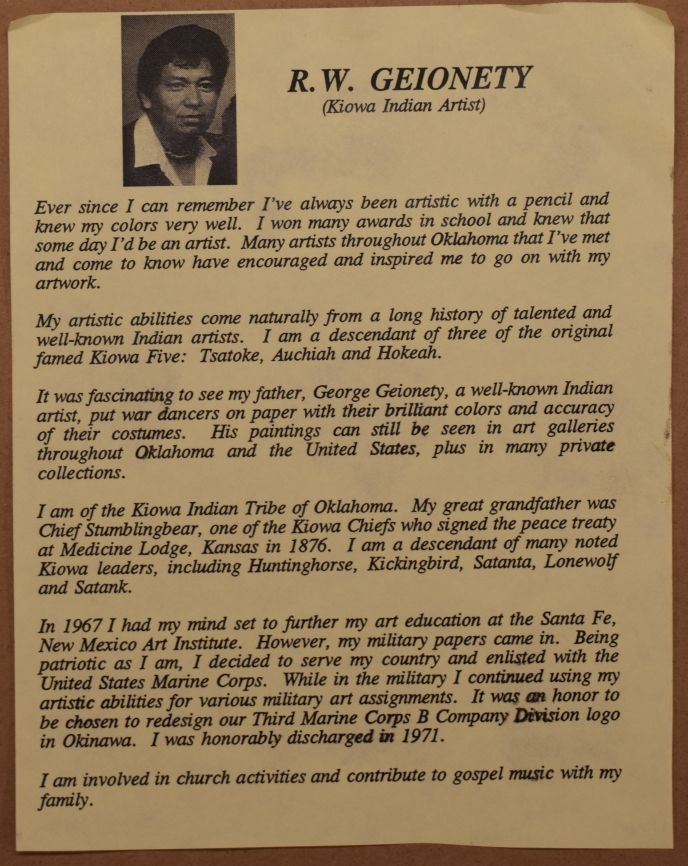 R.W. GEIONETY
(Kiowa Indian Artist)
Ever since I can remember I've always been artistic with a pencil and
knew my colors very well. I won many awards in school and knew that
some day I'd be an artist. Many artists throughout Oklahoma that I've met
and come to know have encouraged and inspired me to go on with my
artwork.
My artistic abilities come naturally from a long history of talented and
well-known Indian artists. I am a descendant of three of the original
famed Kiowa Five: Tsatoke, Auchiah and Hokeah.
It was fascinating to see my father, George Geionety, a well-known Indian
artist, put war dancers on paper with their brilliant colors and accuracy
of their costumes. His paintings can still be seen in art galleries
throughout Oklahoma and the United States, plus in many private
collections.
I am of the Kiowa Indian Tribe of Oklahoma. My great grandfather was
Chief Stumblingbear, one of the Kiowa Chiefs who signed the peace treaty
at Medicine Lodge, Kansas in 1876. I am a descendant of many noted
Kiowa leaders, including Huntinghorse, Kickingbird, Satanta, Lonewolf
and Satank.
In 1967 I had my mind set to further my art education at the Santa Fe,
New Mexico Art Institute. However, my military papers came in. Being
patriotic as I am, I decided to serve my country and enlisted with the
United States Marine Corps. While in the military I continued using my
artistic abilities for various military art assignments. It was an honor to
be chosen to redesign our Third Marine Corps B Company Division logo
in Okinawa. I was honorably discharged in 1971.
I am involved in church activities and contribute to gospel music with my
family.